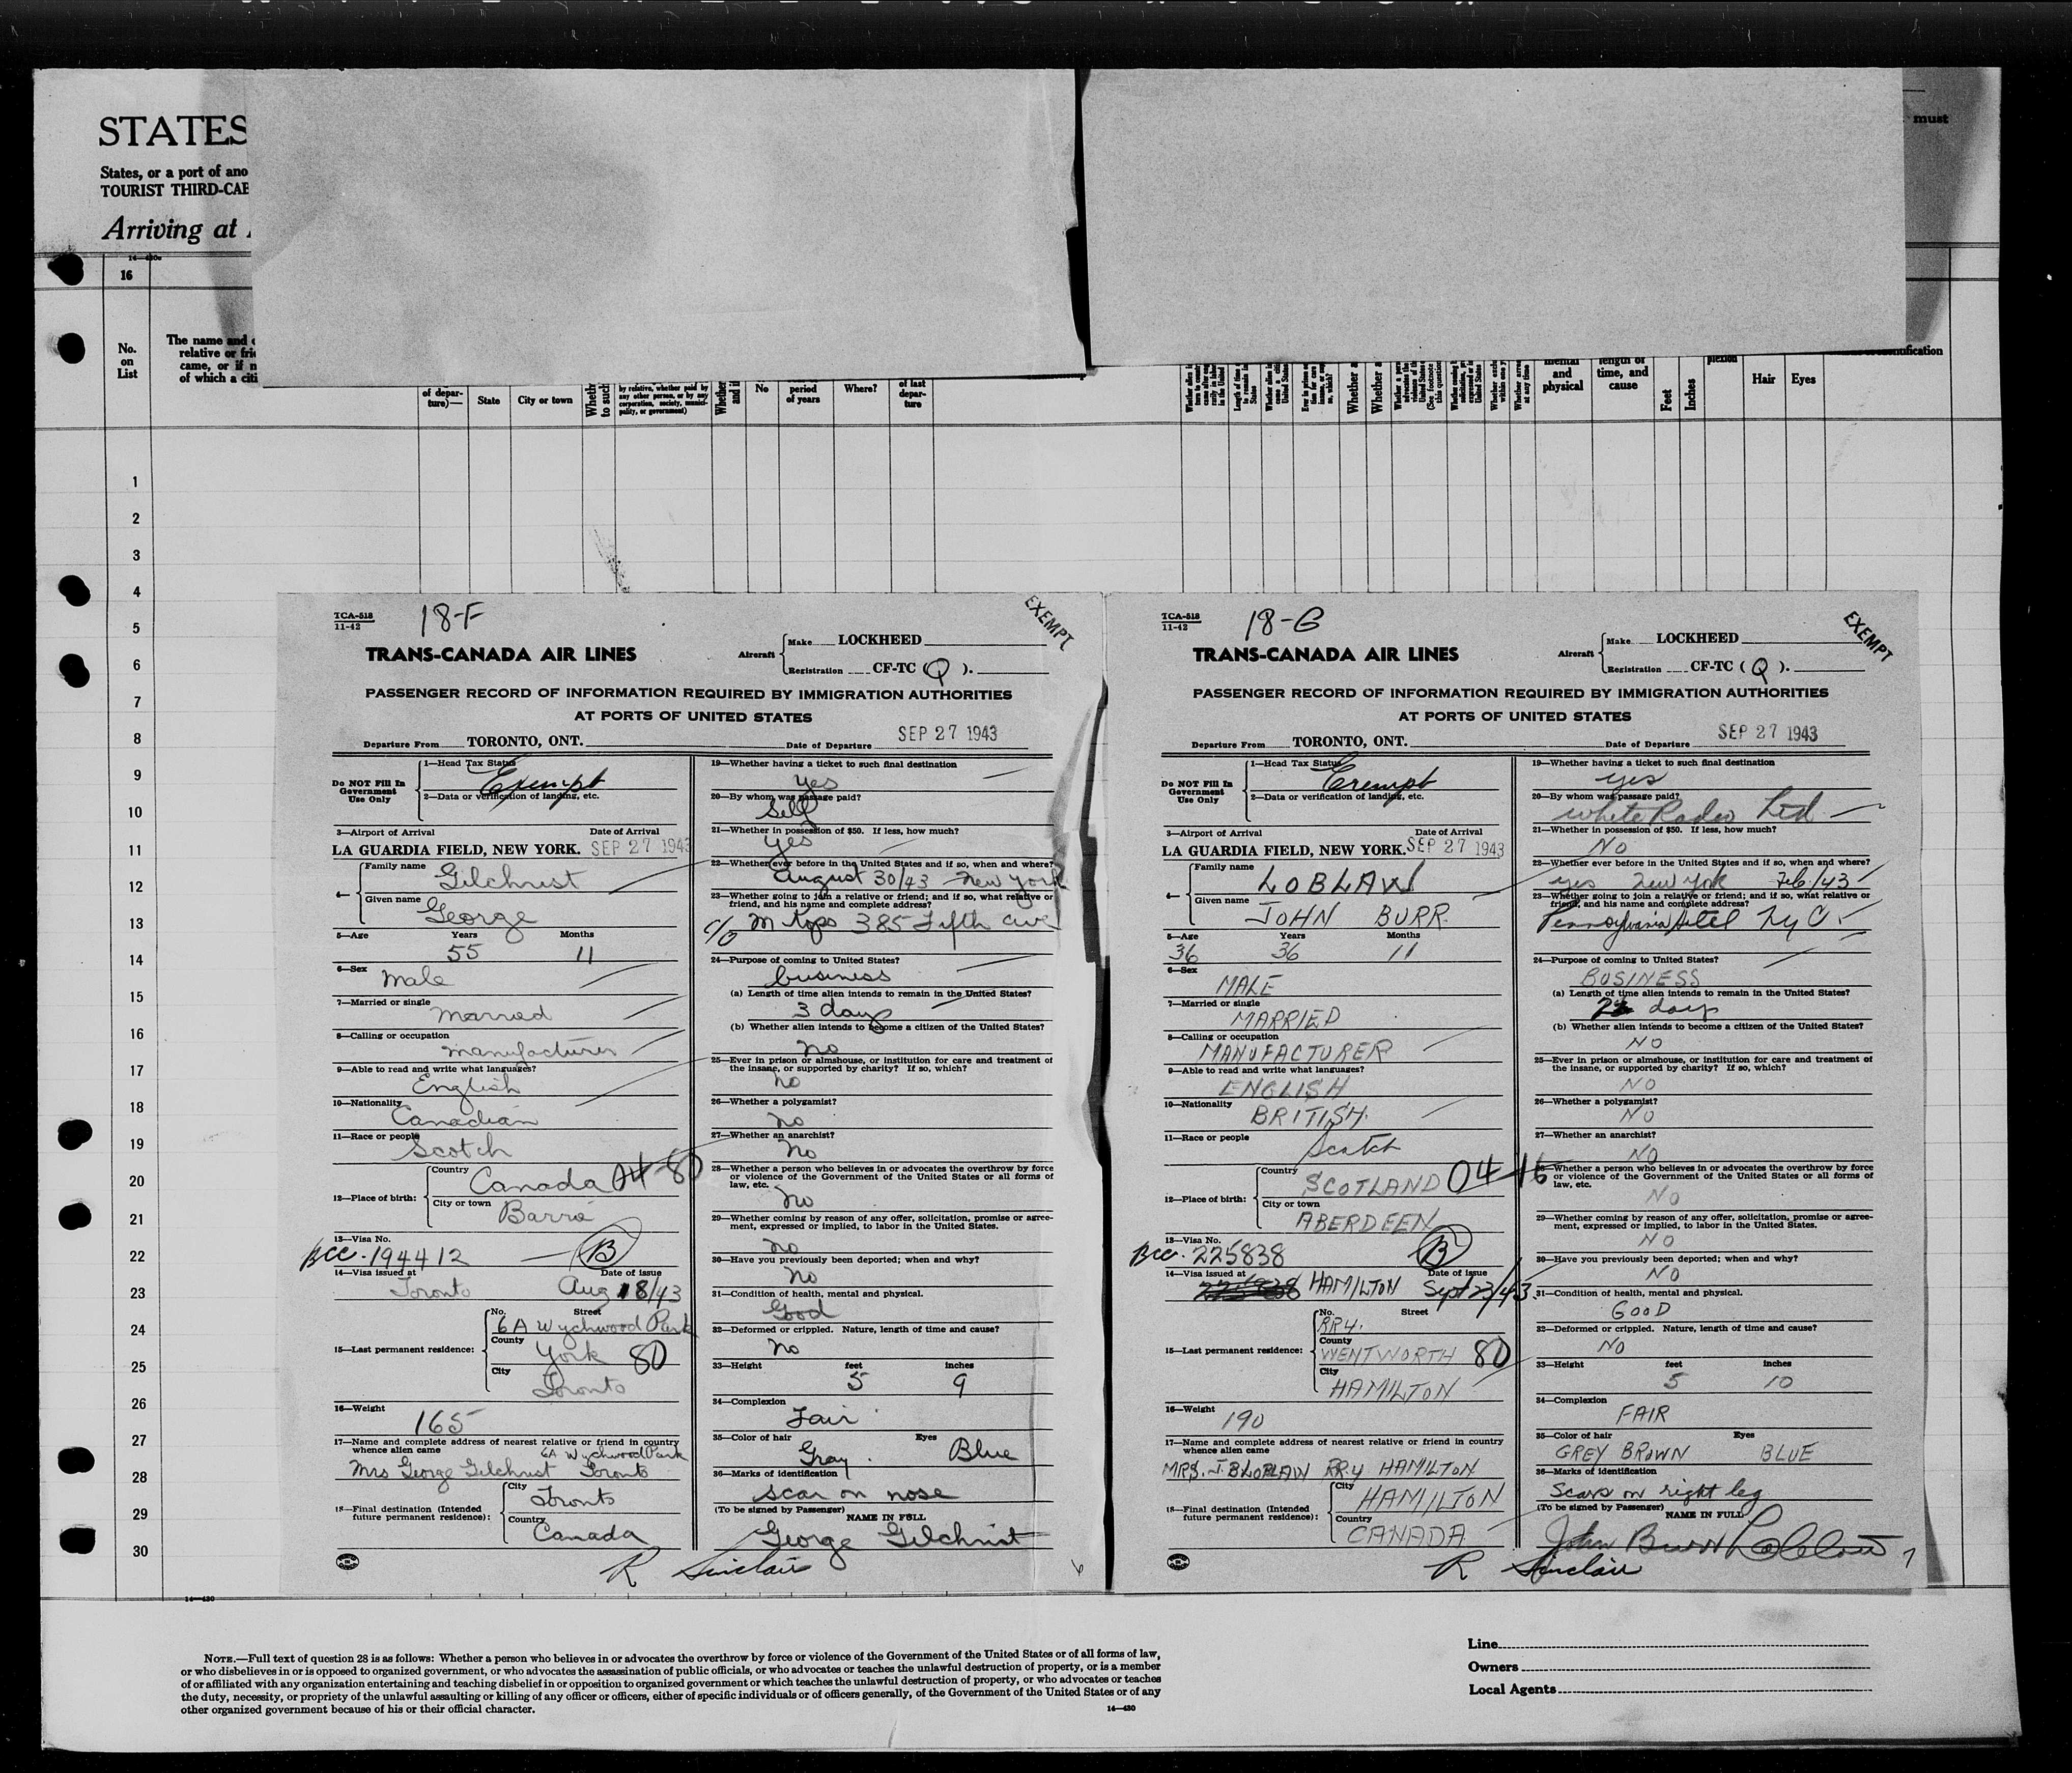 STATES
States, or a port of ano
TOURIST THIRD-CAB
Arriving at
must
14—430a
16
No.
on
List
The name and c
relative or frie
came, or if n
of which a citi
of depar-
ture)—
State
City or town
by relative, whether paid by
any other person, or by any
corporation, society, munici-
pality, or government)
No
period
of years
Where?
of last
depar-
ture
mental
and
physical
length of
time, and
cause
Feet
Inches
plexion
Hair
Eyes
1
2
3
4
5
6
7
8
9
10
11
12
13
14
15
16
17
18
19
20
21
22
23
24
25
26
27
28
29
30
TCA-518
11-42
18-F
EXEMPT
TRANS-CANADA AIR LINES
Aircraft
Make LOCKHEED
Registration CF-TC (Q).
PASSENGER RECORD OF INFORMATION REQUIRED BY IMMIGRATION AUTHORITIES
AT PORTS OF UNITED STATES
Departure From TORONTO, ONT. Date of Departure SEP 27 1943
Do NOT Fill In
Government
Use Only
1—Head Tax Status
Exempt
2—Data or verification of landing, etc.
3—Airport of Arrival Date of Arrival
LA GUARDIA FIELD, NEW YORK. SEP 27 1943
4—
Family name
Gilchrist
Given name
George
5—Age Years Months
55 11
6—Sex
Male
7—Married or single
Married
8—Calling or occupation
manufacturer
9—Able to read and write what languages?
English
10—Nationality
Canadian
11—Race or people
Scotch
12—Place of birth:
Country
Canada 04-80
City or town
Barrie
13—Visa No.
BCC. 194412 B
14—Visa issued at Date of issue
Toronto Aug 18/43
15—Last permanent residence:
No. Street
6A Wychwood Park
County
York 80
City
Toronto
16—Weight
165
17—Name and complete address of nearest relative or friend in country
whence alien came
6A Wychwood Park
Mrs George Gilchrist Toronto
18—Final destination (Intended
future permanent residence):
City
Toronto
Country
Canada
19—Whether having a ticket to such final destination
yes
20—By whom was passage paid?
Self
21—Whether in possession of $50. If less, how much?
yes
22—Whether ever before in the United States and if so, when and where?
August 30/43 New York
23—Whether going to join a relative or friend; and if so, what relative or
friend, and his name and complete address?
c/o 385 Fifth ave
24—Purpose of coming to United States?
business
(a) Length of time alien intends to remain in the United States?
3 days
(b) Whether alien intends to become a citizen of the United States?
no
25—Ever in prison or almshouse, or institution for care and treatment of
the insane, or supported by charity? If so, which?
no
26—Whether a polygamist?
no
27—Whether an anarchist?
no
28—Whether a person who believes in or advocates the overthrow by force
or violence of the Government of the United States or all forms of
law, etc.
no
29—Whether coming by reason of any offer, solicitation, promise or agree-
ment, expressed or implied, to labor in the United States.
no
30—Have you previously been deported; when and why?
no
31—Condition of health, mental and physical.
Good
32—Deformed or crippled. Nature, length of time and cause?
no
33—Height feet inches
5 9
34—Complexion
Fair
35—Color of hair Eyes
Gray Blue
36—Marks of identification
scar on nose
(To be signed by Passenger)
NAME IN FULL
George Gilchrist
R Sinclair
6
TCA-518
11-42
18-G
EXEMPT
TRANS-CANADA AIR LINES
Aircraft
Make LOCKHEED
Registration CF-TC (Q).
PASSENGER RECORD OF INFORMATION REQUIRED BY IMMIGRATION AUTHORITIES
AT PORTS OF UNITED STATES
Departure From TORONTO, ONT. Date of Departure SEP 27 1943
Do NOT Fill In
Government
Use Only
1—Head Tax Status
Exempt
2—Data or verification of landing, etc.
3—Airport of Arrival Date of Arrival
LA GUARDIA FIELD, NEW YORK. SEP 27 1943
4—
Family name
LOBLAW
Given name
JOHN BURR
5—Age Years Months
36 36 11
6—Sex
MALE
7—Married or single
MARRIED
8—Calling or occupation
MANUFACTURER
9—Able to read and write what languages?
ENGLISH
10—Nationality
BRITISH.
11—Race or people
Scotch
12—Place of birth:
Country
SCOTLAND 04 16
City or town
ABERDEEN
13—Visa No.
BCC. 225838 B
14—Visa issued at Date of issue
HAMILTON Sept 23/43.
15—Last permanent residence:
No. Street
RR4.
County
WENTWORTH 80
City
HAMILTON
16—Weight
190
17—Name and complete address of nearest relative or friend in country
whence alien came
MRS. J.B LOBLAW RR4 HAMILTON
18—Final destination (Intended
future permanent residence):
City
HAMILTON
Country
CANADA
19—Whether having a ticket to such final destination
yes
20—By whom was passage paid?
white Radio Ltd.
21—Whether in possession of $50. If less, how much?
NO
22—Whether ever before in the United States and if so, when and where?
yes New York Feb/43
23—Whether going to join a relative or friend; and if so, what relative or
friend, and his name and complete address?
Pennsylvania Hotel NYC.
24—Purpose of coming to United States?
BUSINESS
(a) Length of time alien intends to remain in the United States?
2 days
(b) Whether alien intends to become a citizen of the United States?
NO
25—Ever in prison or almshouse, or institution for care and treatment of
the insane, or supported by charity? If so, which?
NO
26—Whether a polygamist?
NO
27—Whether an anarchist?
NO
28—Whether a person who believes in or advocates the overthrow by force
or violence of the Government of the United States or all forms of
law, etc.
NO
29—Whether coming by reason of any offer, solicitation, promise or agree-
ment, expressed or implied, to labor in the United States.
NO
30—Have you previously been deported; when and why?
NO
31—Condition of health, mental and physical.
GOOD
32—Deformed or crippled. Nature, length of time and cause?
NO
33—Height feet inches
5 10
34—Complexion
FAIR
35—Color of hair Eyes
GREY BROWN BLUE
36—Marks of identification
Scars on right leg
(To be signed by Passenger)
NAME IN FULL
John Burr Loblaw
R Sinclair
7
14—430
NOTE.—Full text of question 28 is as follows: Whether a person who believes in or advocates the overthrow by force or violence of the Government of the United States or of all forms of law,
or who disbelieves in or is opposed to organized government, or who advocates the assassination of public officials, or who advocates or teaches the unlawful destruction of property, or is a member
of or affiliated with any organization entertaining and teaching disbelief in or opposition to organized government or which teaches the unlawful destruction of property, or who advocates or teaches
the duty, necessity, or propriety of the unlawful assaulting or killing of any officer or officers, either of specific individuals or of officers generally, of the Government of the United States or of any
other organized government because of his or their official character.
14—430
Line
Owners
Local Agents